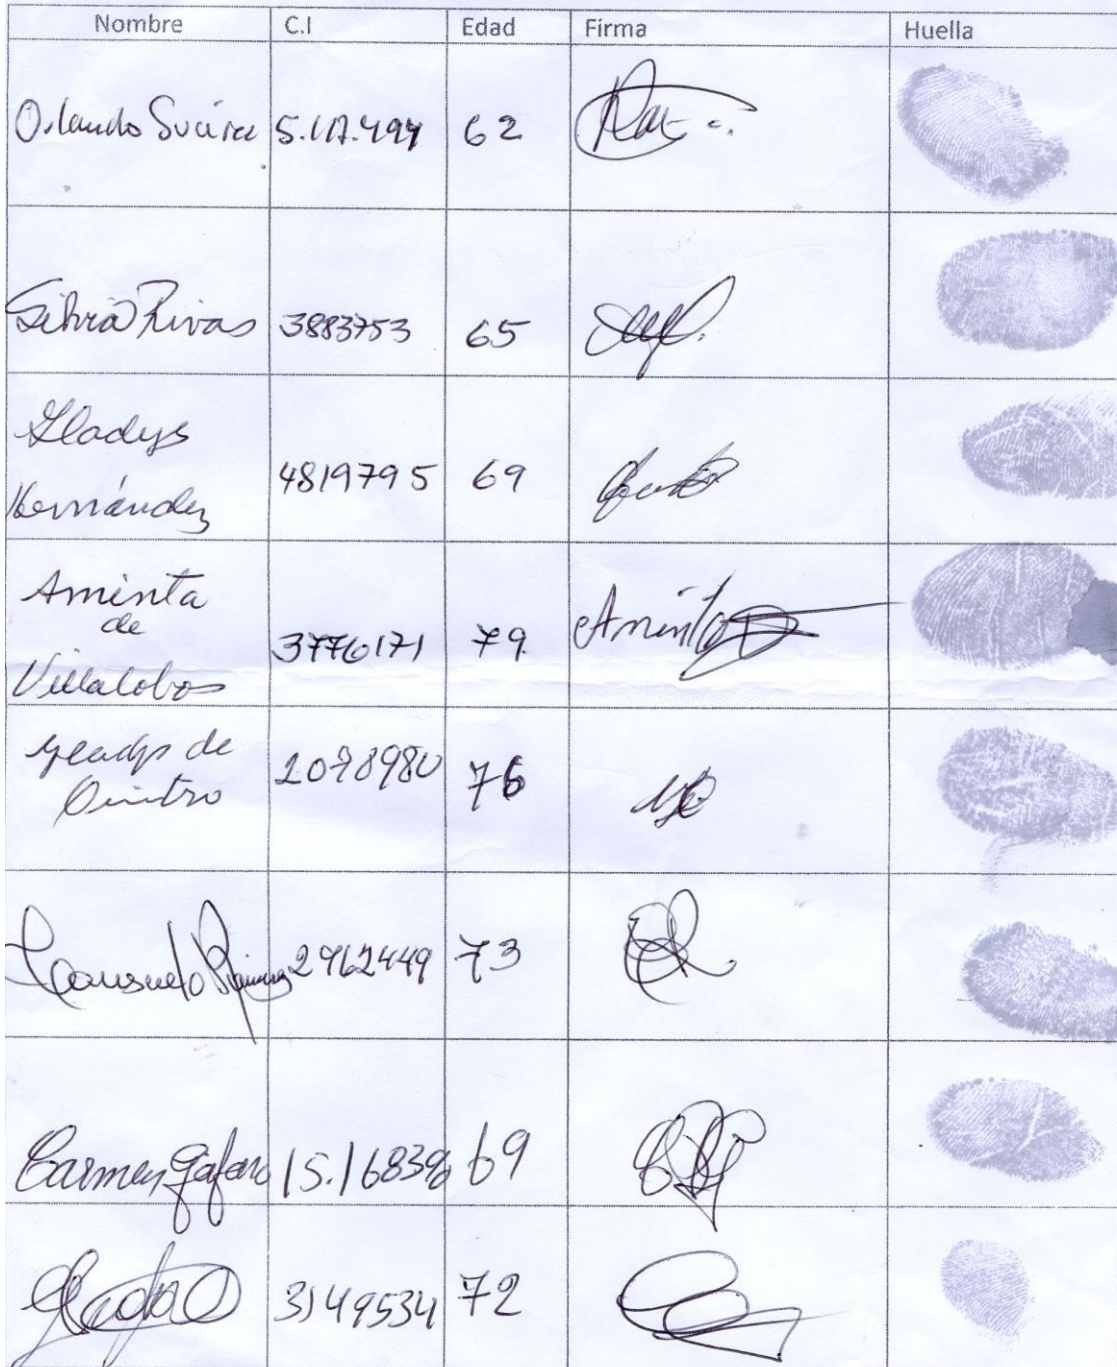 Nombre C.I Edad Firma Huella
Orlando 62
Silvia Rivas 3883753 65
Gladys
Hernández 4819795 69
Aminta
de
Villalobos 3776171 79 Aminta
Gladys de 2078980 76
Consuelo 2962449 73
Carmen Gafaro 15.16839 69
3149534 72